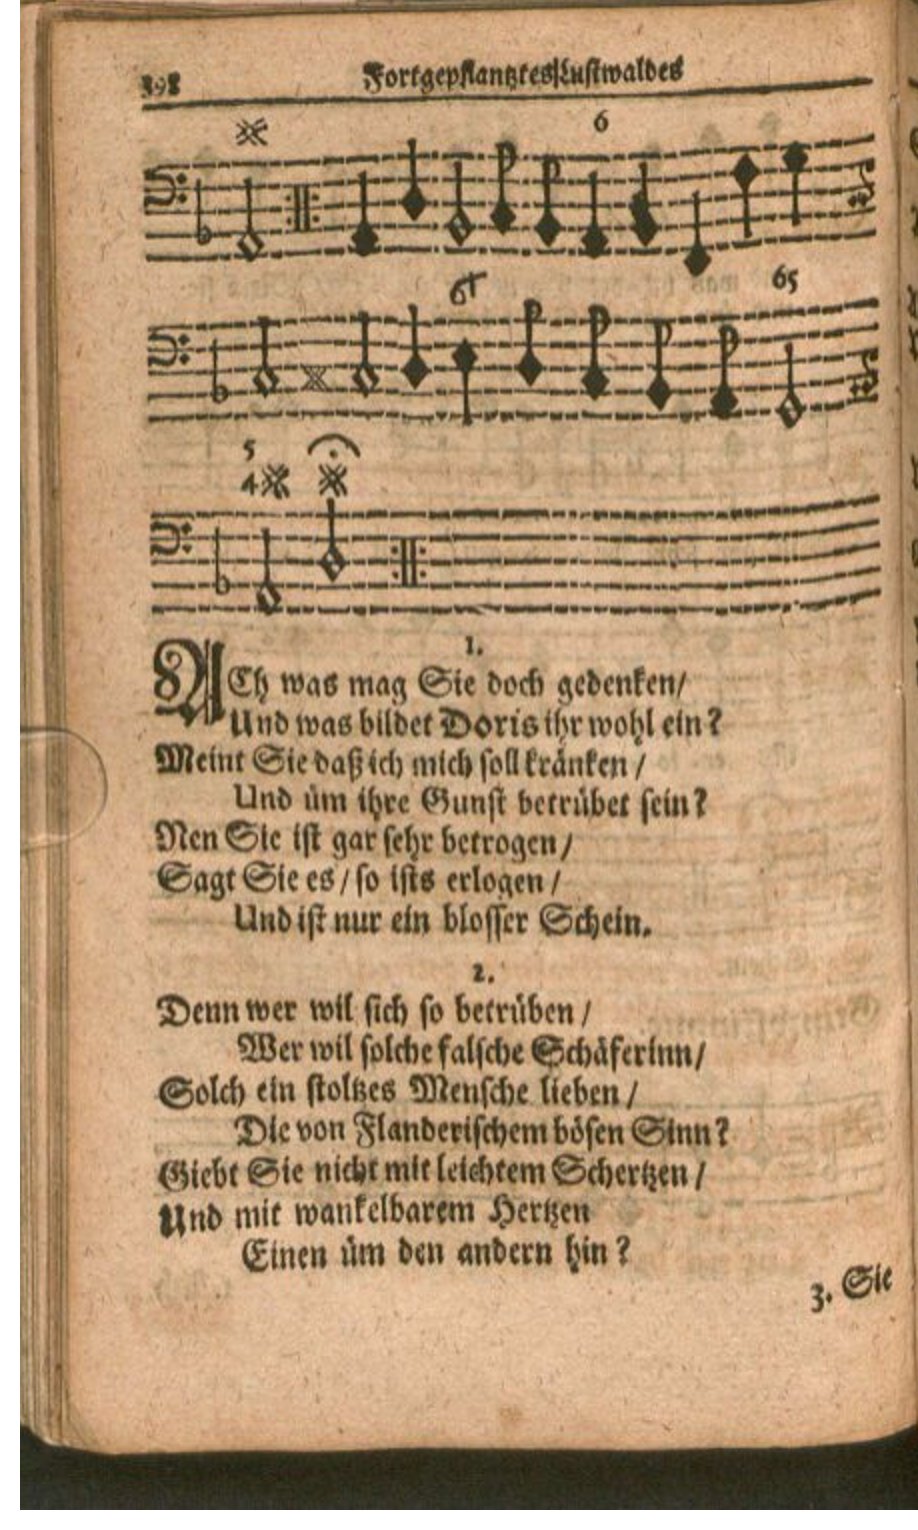 398 Fortgepflantztes Lustwaldes
6
6
65
5
4
1.
ACh was mag Sie doch gedenken/
Und was bildet Doris ihr wohl ein?
Meint Sie daß ich mich soll kränken/
Und üm ihre Gunst betrübet sein?
Nen Sie ist gar sehr betrogen/
Sagt Sie es/ so ists erlogen/
Und ist nur ein blosser Schein.
2.
Denn wer wil sich so betrüben/
Wer wil solche falsche Schäferinn/
Solch ein stoltzes Mensche lieben/
Die von Flanderischem bösen Sinn?
Giebt Sie nicht mit leichtem Schertzen/
Und mit wankelbarem Hertzen
Einen üm den andern hin?
3. Sie